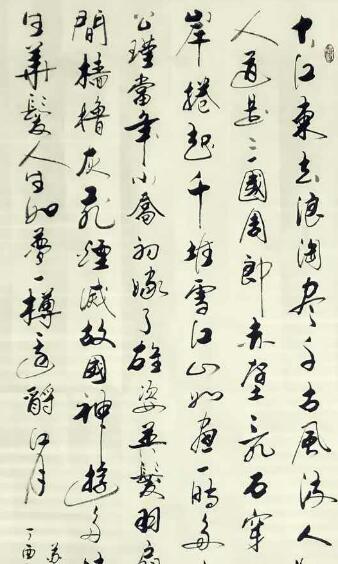 大江東去浪淘盡千古風流人
人道是三國周郎赤壁亂石穿
岸捲起千堆雪江山如畫一時多
公瑾當年小喬初嫁了雄姿英發羽扇
間檣櫓灰飛煙滅故國神遊多
生華髮人生如夢一樽還酹江月
蘇
丁酉